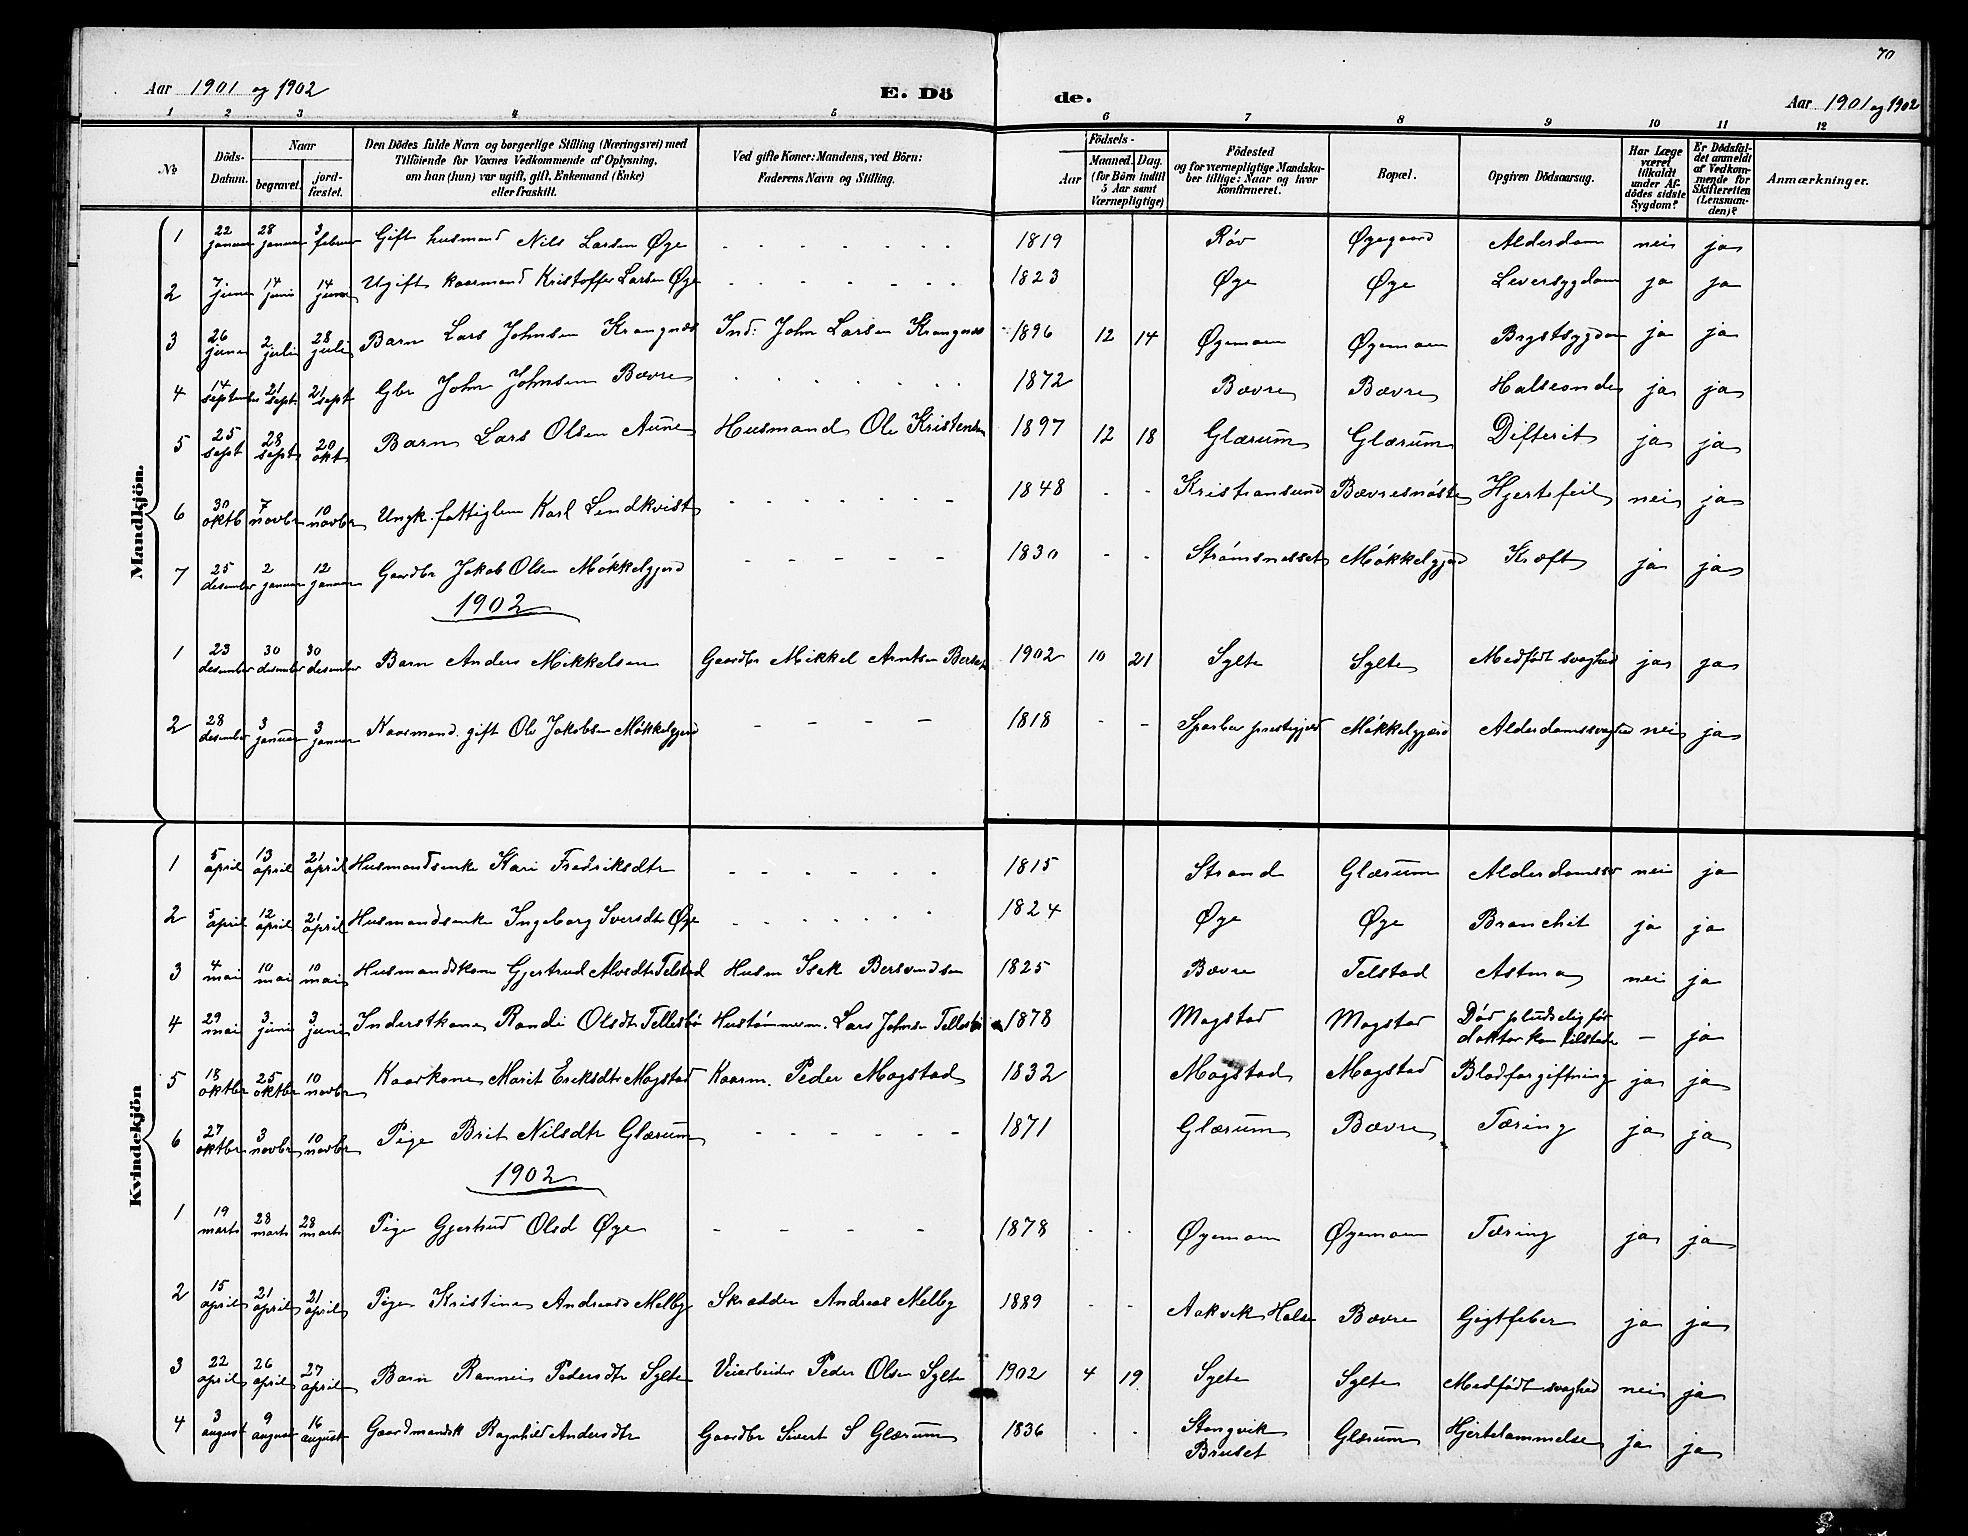 70
Aar 1901 og 1902 E. Dö de. Aar 1901 og 1902
1 2 3 4 5 6 7 8 9 10 11 12
No. Döds-Datum. Naar begravet. jordfæstet. Den Dödes fulde Navn og borgerlige Stilling (Næringsvei) med Tilföiende for Voxnes Vedkommende af Oplysning, om han (hun) var ugift, gift, Enkemand (Enke) eller fraskilt. Ved gifte Koner: Mandens, ved Börn: Faderens Navn og Stilling. Födsels- Aar Maaned. Dag. (for Börn indtil 5 Aar samt Værnepligtige) Födested og for værnepligtige Mandskaber tillige: Naar og hvor konfirmeret. Bopæl. Opgiven Dödsaarsag. Har Læge været tilkaldt under Afdödes sidste Sygdom? Er Dödsfaldet anmeldt af Vedkommende for Skifteretten (Lensmanden)? Anmærkninger.
Mandkjön.
1 22 januar 28 januar 3 februar Gift husmand Nils Larsen Øye - - - - - - - 1819 Røv Øyegaard Alderdom nei ja
2 7 juni 14 juni 14 juni Ugift kaarmand Kristoffer Larsen Øye - - - - - - - 1823 Øye Øye Leversygdom ja ja
3 26 juni 2 juli 28 juli Barn Lars Johnsen Krangnæs Ind: John Larsen Krangnæs 1896 12 14 Øyemoen Øyemoen Brystsygdom ja ja
4 14 september 21 sept 21 sept Gbr John Johnsen Bævre - - - - - - - 1872 Bævre Bævre Halsonde ja ja
5 25 sept 28 sept 20 okt Barn Lars Olsen Aune Husmand Ole Kristensen 1897 12 18 Glærum Glærum Difterit ja ja
6 30 oktb 7 novbr 10 novbr Ungk. fattiglem Karl Lindkvist - - - - - - - 1848 - - Kristiansund Bævresnøste Hjertefeil nei ja
7 25 desember 2 januar 12 januar Gaardbr Jakob Olsen Møkkelgjerd - - - - - 1830 - - Strømsnesset Møkkelgjerd Kræft ja ja
1902
1 23 desember 30 desember 30 desember Barn Anders Mikkelsen Gaardbr Mikkel Arntsen 1902 10 21 Sylte Sylte Medfødt svaghed ja ja
2 28 desember 3 januar 3 januar Kaarmand gift Ole Jakobsen Møkkelgjerd - - - - 1818 - - Sparbu prestegjeld Møkkelgjerd Alderdomssvaghed nei ja
Kvindekjön
1 5 april 13 april 21 april Husmandsenke Kari Fredriksdtr - - - - - - 1815 Strand Glærum Alderdomssv nei ja
2 5 april 12 april 21 april Husmandsenke Ingeborg Iversdtr Øye - - - - - - 1824 Øye Øye Bronchit ja ja
3 4 mai 10 mai 10 mai Husmandskone Gjertrud Alvsdtr Telstad Husm Isak Bersvendsen 1825 Bævre Telstad Astma nei ja
4 29 mai 3 juni 3 juni Inderstkone Randi Olsdtr Tellesbø Hustømmerm. Lars Johnsen Tellesbø 1878 Mogstad Mogstad Død pludselig før doktor kom tilstede - ja
5 18 oktbr 25 oktbr 10 novbr Kaarkone Marit Eriksdtr Mogstad Kaarm. Peder Mogstad 1832 Mogstad Mogstad Blodforgiftning ja ja
6 27 oktbr 3 novbr 10 novbr Pige Brit Nilsdtr Glærum - - - - - - 1871 Glærum Bævre Tæring ja ja
1902
1 19 marts 28 marts 28 marts Pige Gjertrud Olsd Øye - - - - 1878 - - Øyemoen Øyemoen Tæring ja ja
2 15 april 21 april 21 april Pige Kristine Andreasd Melby Skrædder Andreas Melby 1889 - - Aakvik Halse Bævre Gigtfeber ja ja
3 22 april 26 april 27 april Barn Rannei Pedersdtr Sylte Veiarbeider Peder Olsen Sylte 1902 4 19 Sylte Sylte Medfødt svaghed nei ja
4 3 august 9 august 16 august Gaardmandsk Ragnhild Andersdtr Gaardbr Sivert S Glærum 1836 - - Stangvik Bruset Glærum Hjertelammelse ja ja